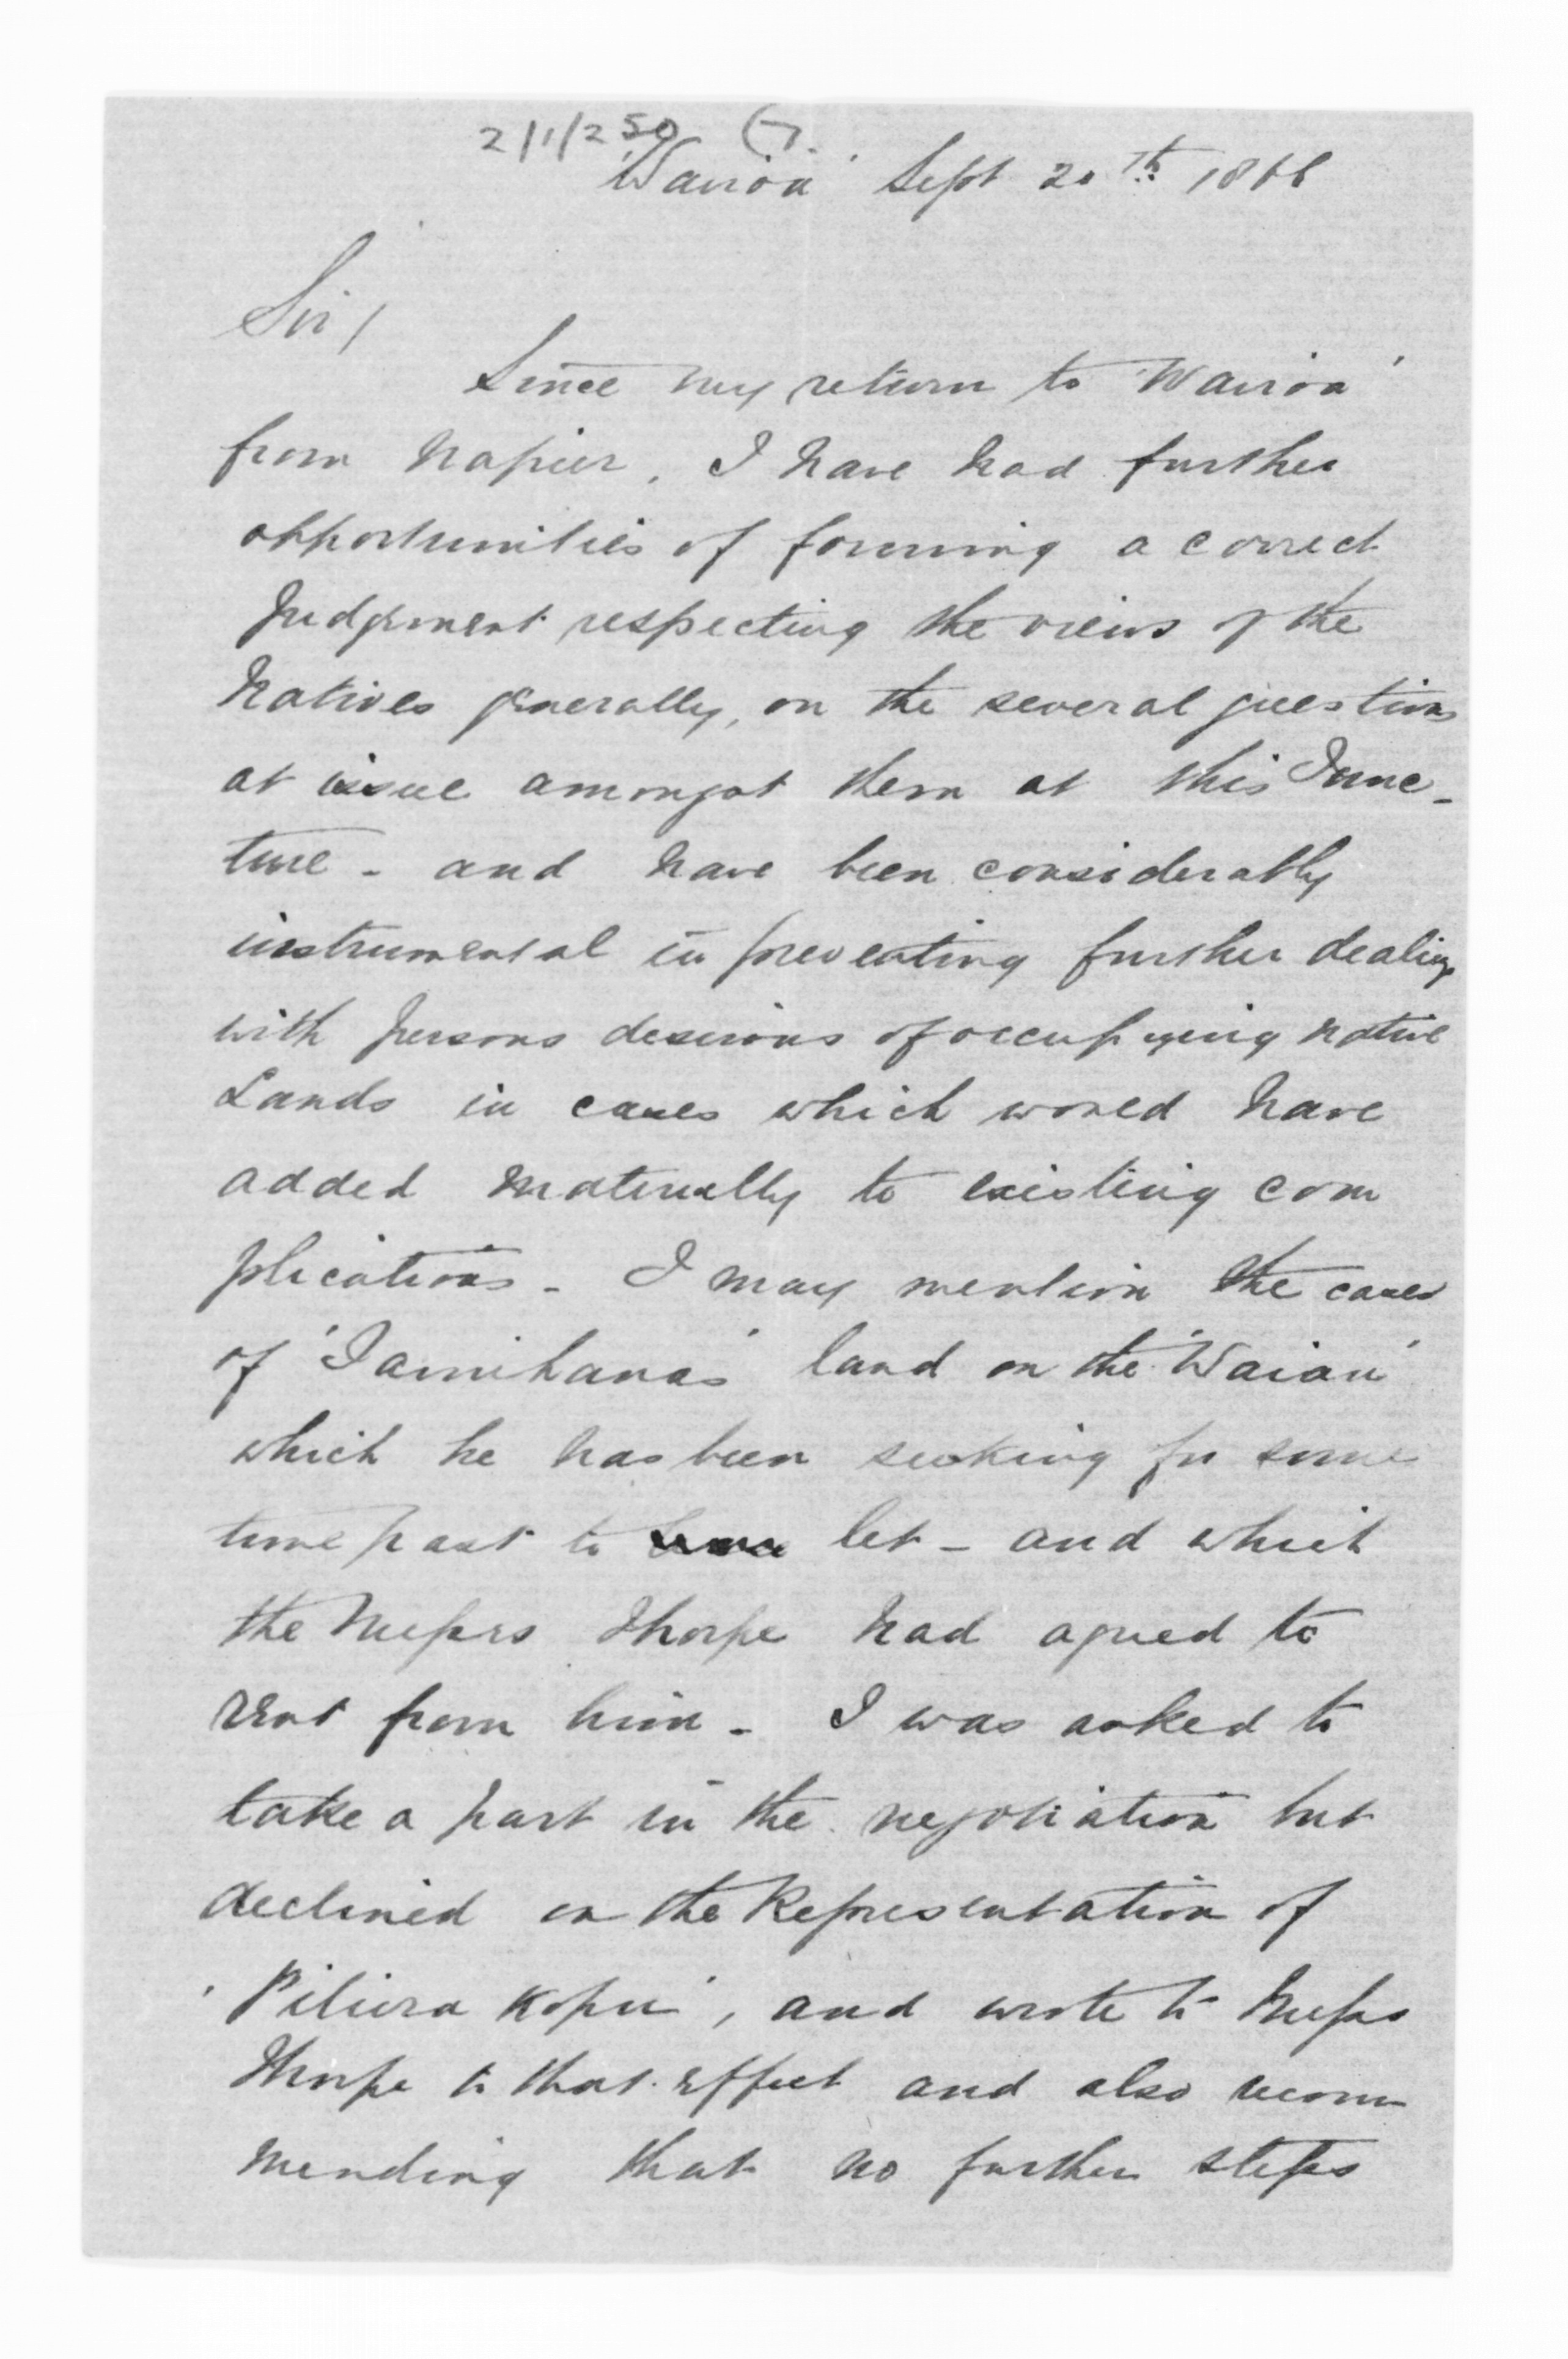 2/1/2 50 G.
'Wairoa' Sept 20th 1866
Sir/
Since my return to 'Wairoa'
from Napier, I have had further
opportunities of forming a correct
Judgement respecting the views of the
Natives generally, on the several questions
at issue amongst them at this Junc-
ture - and have been considerably
instrumental in preventing further dealings
with persons desirous of occupying native
Lands in cases which would have
added materially to existing com
plications - I may mention the cases
of 'Tamihanas' land on the 'Waiau'
which he has been seeking for some
time past to let - and which
the Messrs Thorpe had agreed to
rent from him - I was asked to
take a part in the negotiation but
declined on the Representation of
'Pitiera Kopu', and wrote to Messrs
Thorpe to that effect and also recom
mending that no further steps